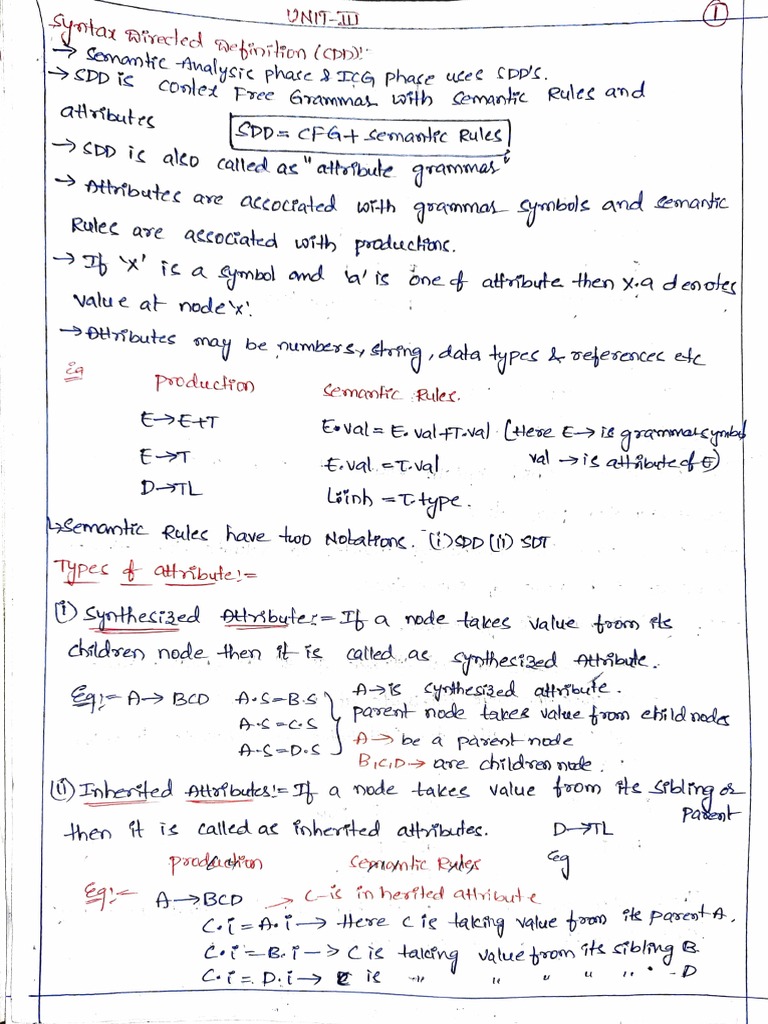 UNIT-III
1
Syntax Directed Definition (CDD):-
→ Semantic Analysic phase & ICG phase uses SDD's.
→ SDD is contex Free Grammar with semantic Rules and
attributes
SDD = CFG + semantic Rules
→ SDD is also called as "attribute grammar"
→ Attributes are associated with grammar symbols and semantic
Rules are associated with productions.
→ If 'x' is a symbol and 'a' is one of attribute then x.a denotes
value at node 'x'.
→ Attributes may be numbers, string, data types & references etc
Eg production semantic Rules.
E→E+T E.val = E.val+T.val (Here E→ is grammar symbol
E→T E.val = T.val. val → is attribute of E)
D→TL L.inh = T.type.
↳ Semantic Rules have two Notations. (i) SDD (ii) SDT
Types of attribute:=
(i) Synthesized Attribute:= If a node takes value from its
children node, then it is called as synthesized Attribute.
Eg:- A→ BCD A.S=B.S A→is synthesized attribute.
A.S=C.S parent node takes value from child nodes
A.S=D.S A→ be a parent node
B,C,D→ are children node.
(ii) Inherited Attributes:= If a node takes value from its sibling or
parent
then it is called as inherited attributes. D→TL
production Semantic Rules Eg
Eg:- A→BCD → C-is inherited attribute
C.i = A.i → Here C is taking value from its parent A.
C.i = B.i → C is taking value from its sibling B.
C.i = D.i → C is " " " " " . D